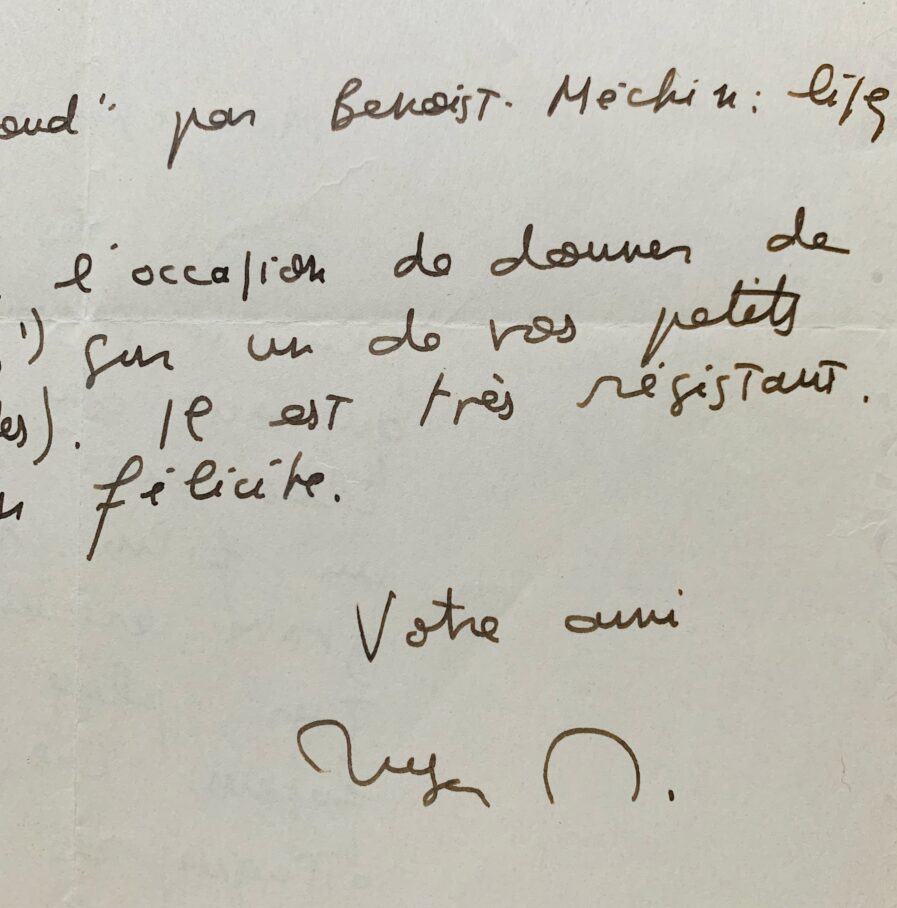 oud" par Benoist-Méchin : lise
l'occasion de donner de
') sur un de vos petits
es). Il est très résistant.
félicite.
Votre ami